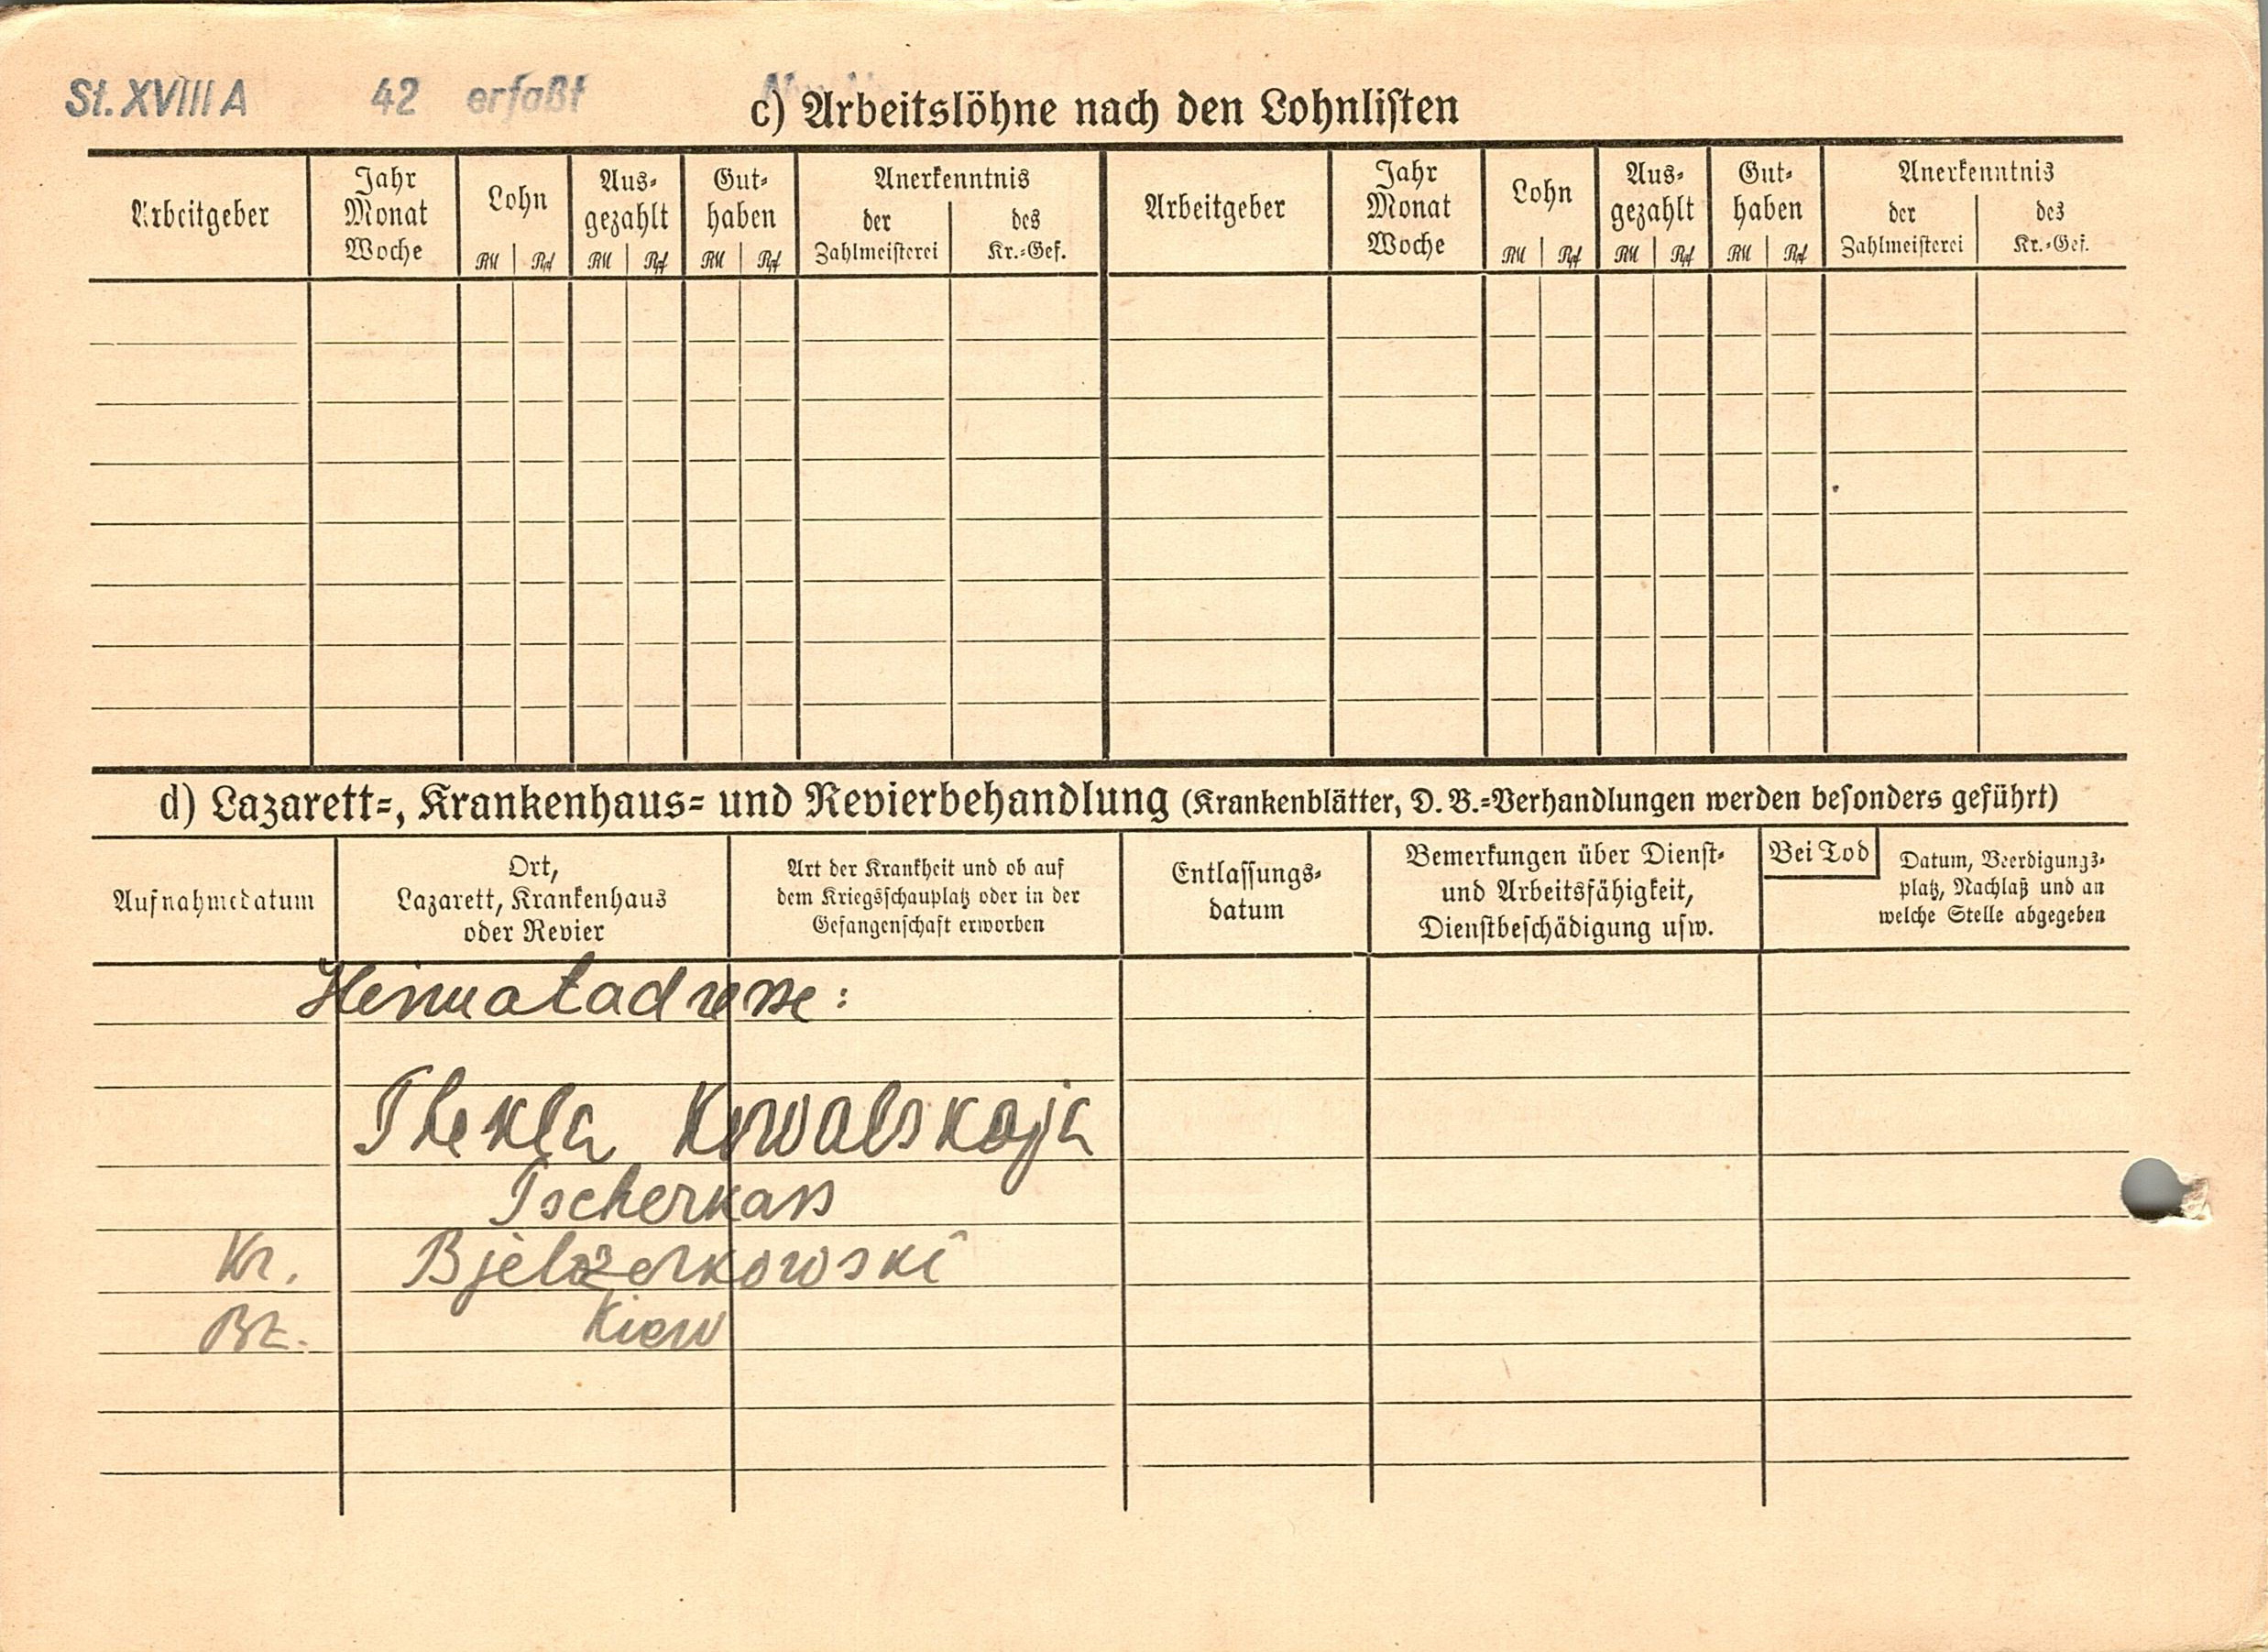 St. XVIII A 42 erfaßt
c) Arbeitslöhne nach den Lohnlisten
Arbeitgeber Jahr Monat Woche Lohn Ausgezahlt Guthaben Anerkenntnis Arbeitgeber Jahr Monat Woche Lohn Ausgezahlt Guthaben Anerkenntnis
der Zahlmeisterei des Kr.-Gef. der Zahlmeisterei des Kr.-Gef.
RM Rpf RM Rpf RM Rpf RM Rpf RM Rpf RM Rpf
d) Lazarett-, Krankenhaus- und Revierbehandlung (Krankenblätter, D. B.-Verhandlungen werden besonders geführt)
Aufnahmedatum
Ort,
Lazarett, Krankenhaus
oder Revier
Art der Krankheit und ob auf
dem Kriegsschauplatz oder in der
Gefangenschaft erworben
Entlassungs-
datum
Bemerkungen über Dienst-
und Arbeitsfähigkeit,
Dienstbeschädigung usw.
Bei Tod
Datum, Beerdigungs-
platz, Nachlaß und an
welche Stelle abgegeben
Heimatadresse:
Thekla Kowalskaja
Tscherkass
Kr. Bjelozerkowski
Bz. Kiew